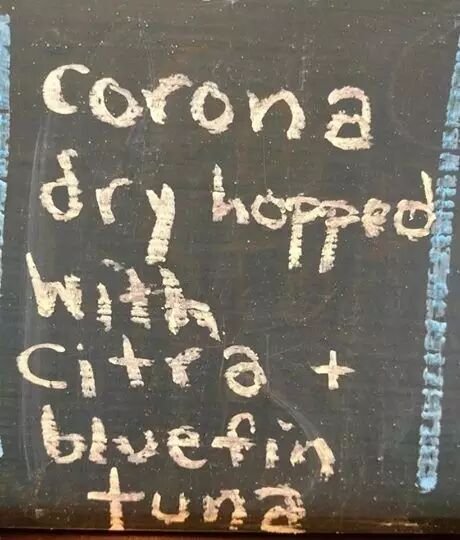 corona
dry hopped
with
citra +
bluefin
tuna